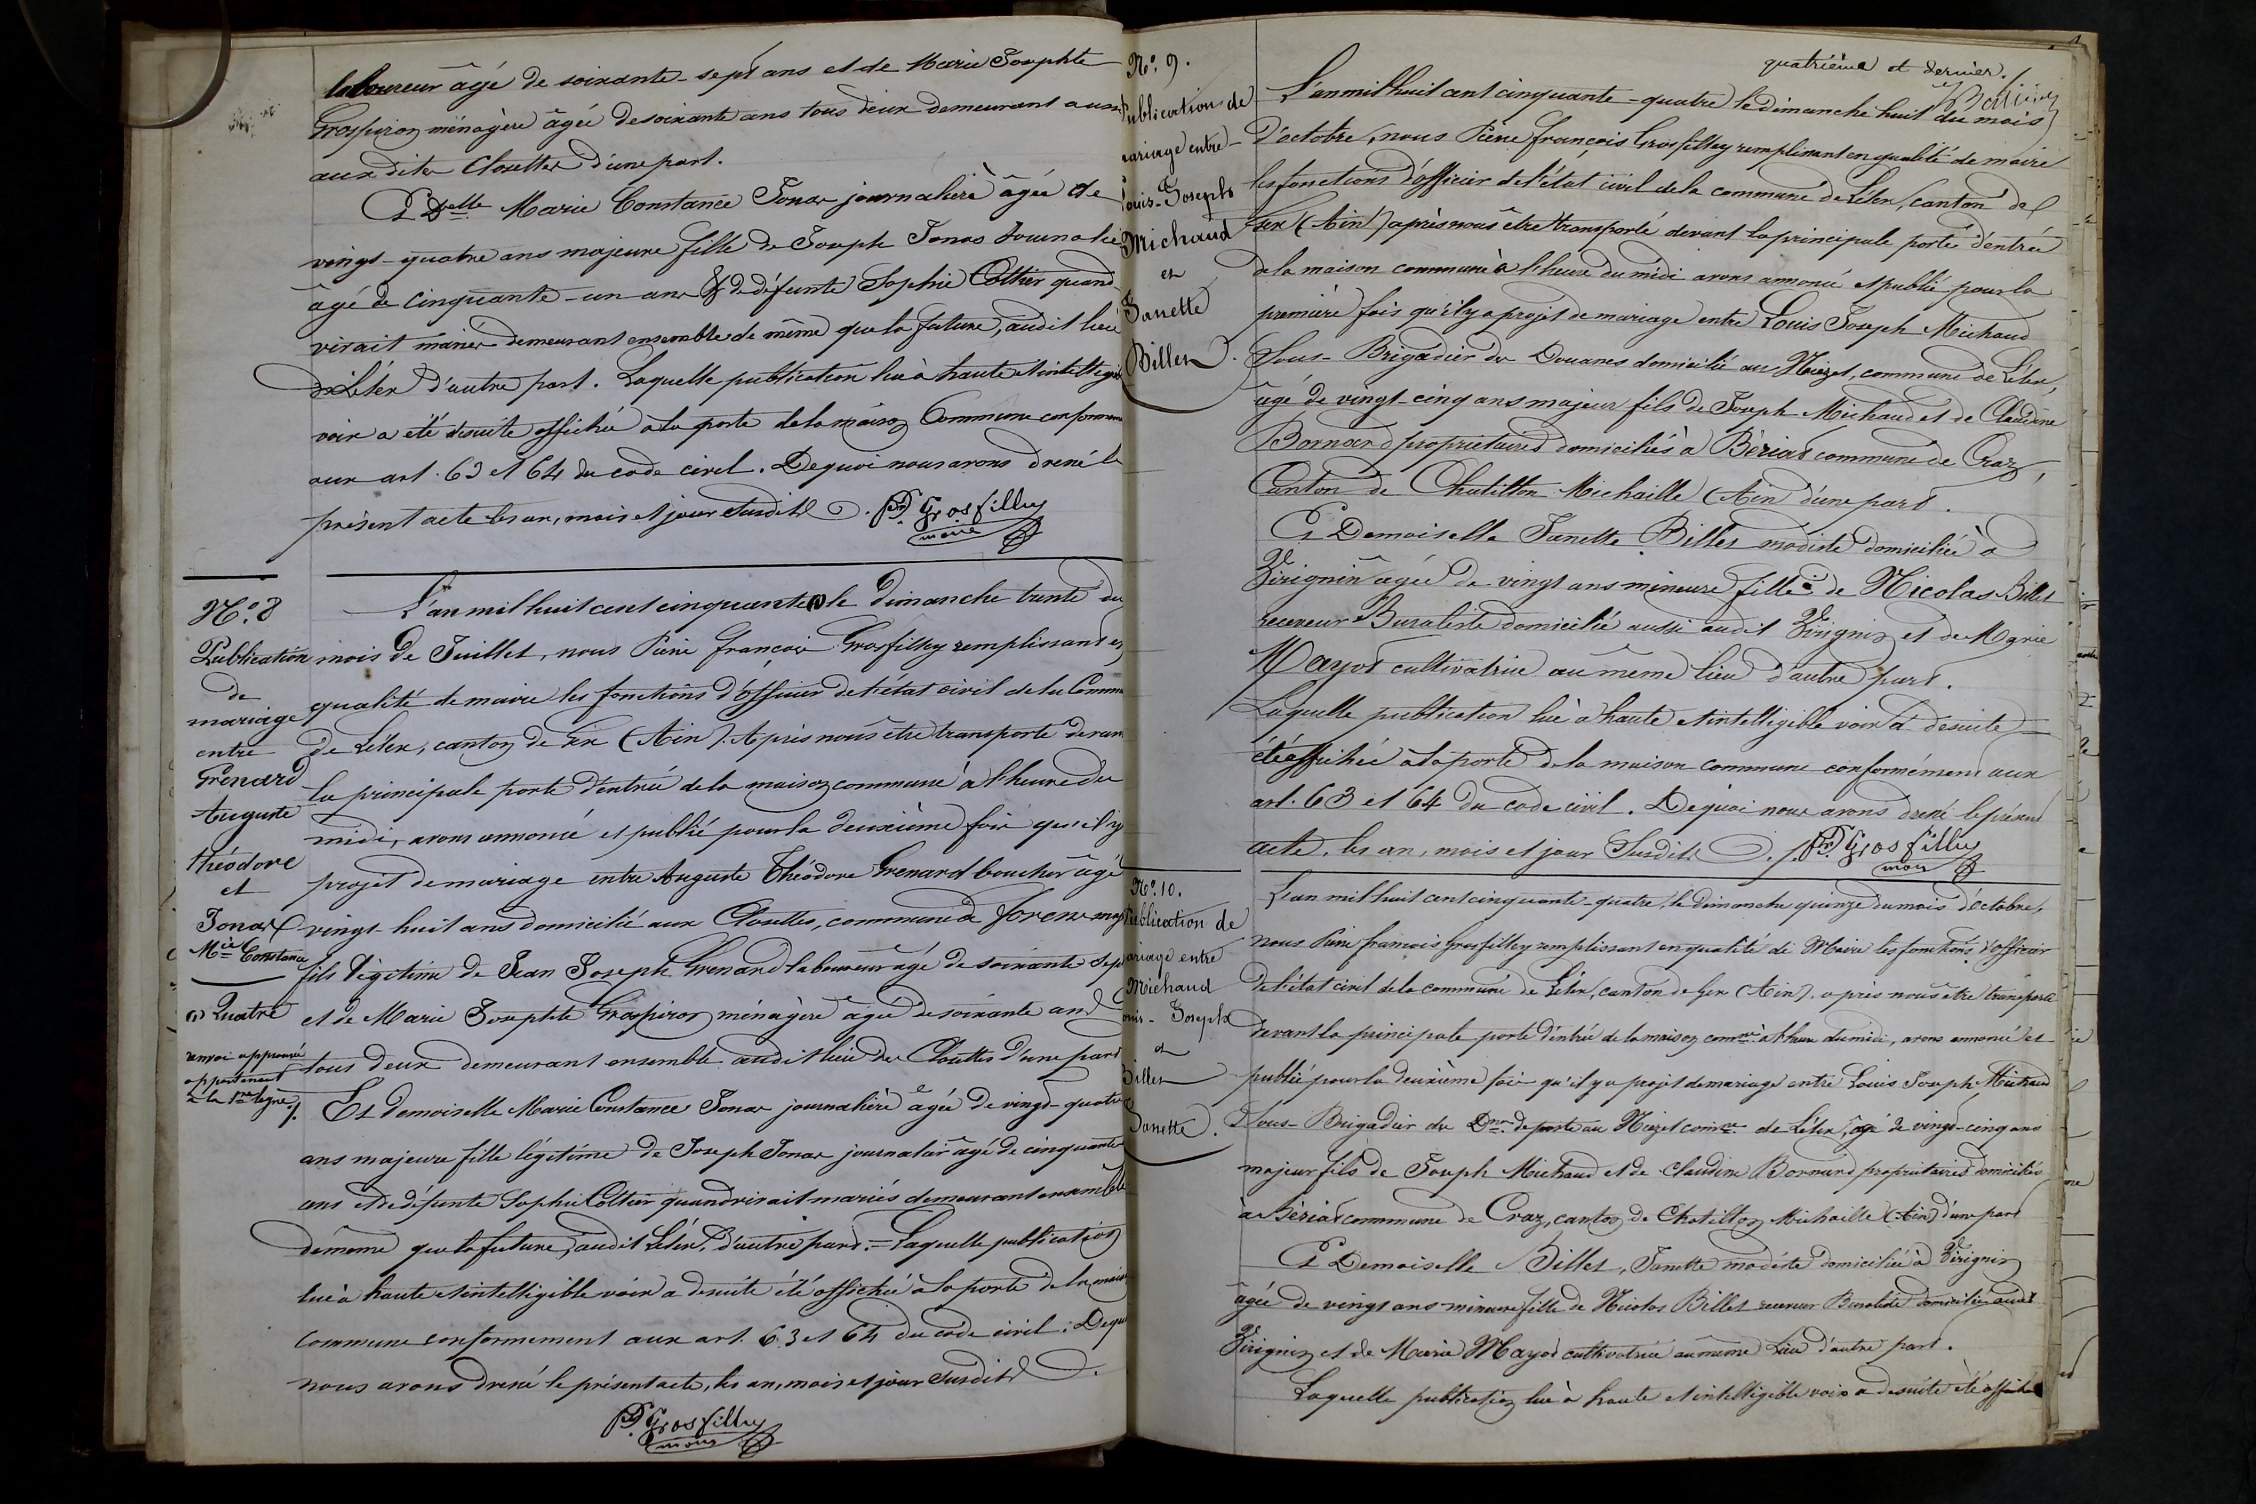 laboureur âgé de soixante-sept ans et de Marie Josephte
Grospiron ménagère âgée de soixante ans tous deux demeurant aussi
aux dites Closettes d'une part.
Et Delle Marie Constance Jonas journalière âgée de
vingt-quatre ans majeure fille de Joseph Jonas Journalier
âgé de cinquante-un ans & de défunte Sophie Cottier quand
vivait mariés demeurant ensemble de même que la future, audit lieu
de Lélex d'autre part. Laquelle publication lue à haute et intelligible
voix a été desuite affichée à la porte de la maison Commune conformément
aux art. 63 et 64 du code civil. De quoi nous avons dressé le
présent acte les an, mois et jour Susdits.
Pre Fs Grosfilley
maire
N°. 8
Publication
de
mariage
entre
Grenard
Auguste
théodore
et
Jonas
Mie Constance
(1) Quatre
renvoi approuvé
appartenant
à la 1re ligne ./.
L'an mil huit cent cinquante (1) le dimanche trente du
mois de Juillet, nous Pierre François Grosfilley remplissant en
qualité de maire les fonctions d'officier de l'état civil de la Commune
de Lélex, canton de Gex (Ain). Après nous être transporté devant
la principale porte d'entrée de la maison commune à l'heure du
midi, avons annoncé et publié pour la deuxième fois qu'il y a
projet de mariage entre Auguste Théodore Grenard boucher âgé
vingt-huit ans domicilié aux Closettes, commune de forens majeur
fils légitime de Jean Joseph Grenard laboureur âgé de soixante sept
et de Marie Josephte Grospiron ménagère âgée de soixante ans
tous deux demeurant ensemble audit lieu des Closettes d'une part
Et demoiselle Marie Constance Jonas journalière âgée de vingt-quatre
ans majeure fille légitime de Joseph Jonas journalier âgé de cinquante
ans et de défunte Sophie Cottier quand vivait mariés demeurant ensemble
de même que la future, audit Lélex, d'autre part. = Laquelle publication
lue à haute et intelligible voix a desuite été affichée à la porte de la maison
commune conformement aux art. 63 et 64 du code civil. De quoi
nous avons dressé le présent acte, les an, mois et jour Susdits.
Pre Fs Grosfilley
maire
quatrième et dernier. /.
N°. 9.
Publication de
mariage entre
Louis-Joseph
Michaud
et
Janette
Billet.
L'an mil huit cent cinquante-quatre le dimanche huit du mois
D'octobre, nous Pierre françois Grosfilley remplissant en qualité de maire
les fonctions d'officier de l'état civil de la commune de Lélex, canton de
Gex (Ain) après nous être transporté devant la principale porte d'entrée
de la maison commune à l'heure du midi avons annoncé et publié pour la
première fois qu'il y a projet de mariage entre Louis Joseph Michaud
Sous-Brigadier des Douanes domicilié au Niézet, commune de Lélex,
âgé de vingt-cinq ans majeur fils de Joseph Michaud et de Claudine
Bornard propriétaires domiciliés à Bériat commune de Craz,
Canton de Chatillon Michaille (Ain) d'une part.
Et Demoiselle Janette Billet modiste domiciliée à
Virignin âgée de vingt ans mineure fille de Nicolas Billet
receveur Buraliste domicilié aussi audit Virignin et de Marie
Mayot cultivatrice au même lieu d'autre part.
Laquelle publication lue à haute et intelligible voix a desuite
été affichée à la porte de la maison commune conformément aux
art. 63 et 64 du code civil. De quoi nous avons dressé le présent
acte, les an, mois et jour Susdits.
Pre Fs Grosfilley
maire
N°. 10.
Publication de
mariage entre
Michaud
Louis-Joseph
et
Billet
Janette.
L'an mil huit cent cinquante-quatre le dimanche quinze du mois d'octobre,
nous Pierre françois Grosfilley remplissant en qualité de Maire les fonctions d'officier
de l'état civil de la commune de Lélex, canton de Gex (Ain), après nous être transporté
devant la principale porte d'entrée de la maison comne à l'heure du midi, avons annoncé et
publié pour la deuxième fois qu'il y a projet de mariage entre Louis Joseph Michaud
Sous-Brigadier des Dnes de poste au Niézet comne de Lélex, âgé de vingt-cinq ans
majeur fils de Joseph Michaud et de Claudine Bornard propriétaires domiciliés
à Bériat commune de Craz, canton de Chatillon Michaille (Ain) d'une part
Et Demoiselle Billet, Janette modiste domiciliée à Virignin
âgée de vingt ans mineure fille de Nicolas Billet receveur Buraliste domicilié audit
Virignin et de Marie Mayot cultivatrice au même Lieu d'autre part.
Laquelle publication lue à haute et intelligible voix a desuite été affichée